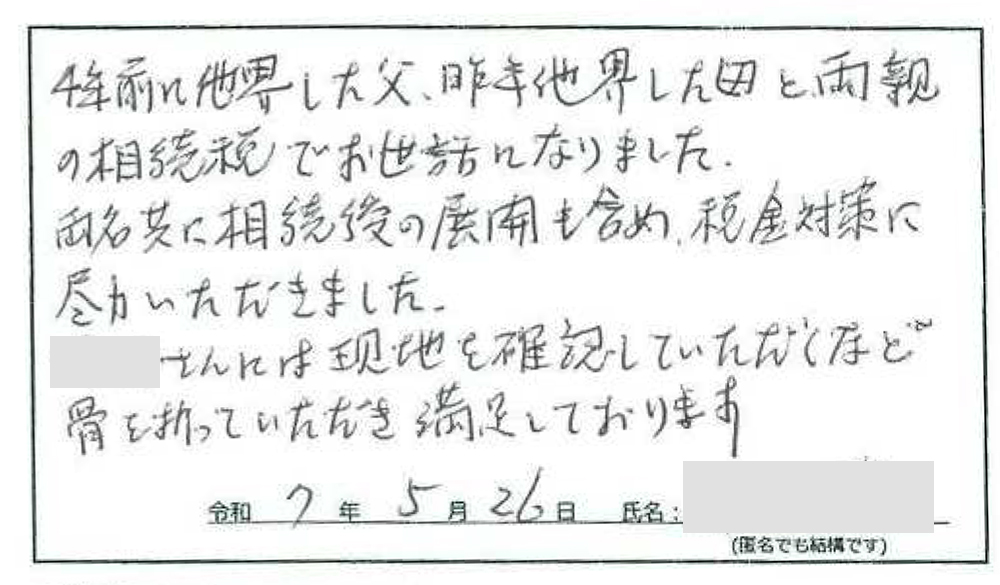 4年前に他界した父、昨年他界した母と、両親
の相続税でお世話になりました.
両名共に相続後の展開も含め、税金対策に
尽力いただきました.
さんには現地を確認していただくなど
骨を折っていただき満足しております
令和 7 年 5 月 26 日 氏名：
(匿名でも結構です)